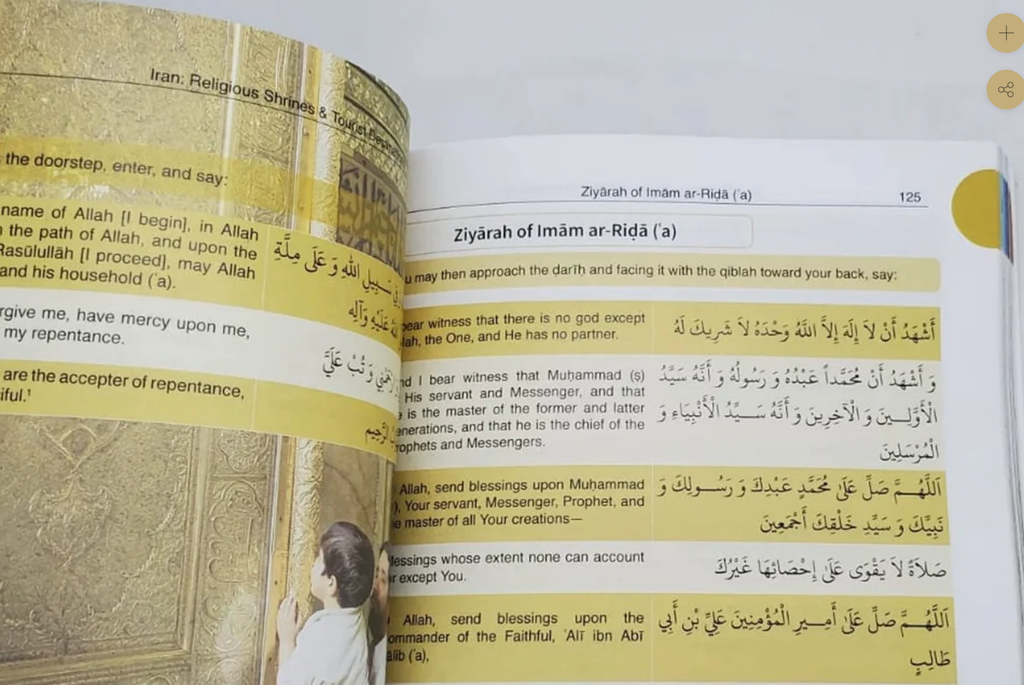 Iran: Religious Shrines & Tourist
the doorstep, enter, and say:
name of Allah [I begin], in Allah
the path of Allah, and upon the
Rasūlullāh [I proceed], may Allah
and his household (ʿa).
سَبِيلِ اللهِ وَ عَلَى مِلَّةِ
عَلَيْهِ وَآلِهِ
give me, have mercy upon me,
my repentance.
وَ تُبْ عَلَيَّ
are the accepter of repentance,
الرَّحِيم
Ziyārah of Imām ar-Riḍā (ʿa)
125
Ziyārah of Imām ar-Riḍā (ʿa)
may then approach the ḍarīḥ and facing it with the qiblah toward your back, say:
bear witness that there is no god except
the One, and He has no partner.
أَشْهَدُ أَنْ لاَ إِلَهَ إِلاَّ اللَّهُ وَحْدَهُ لاَ شَرِيكَ لَهُ
I bear witness that Muḥammad (ṣ)
His servant and Messenger, and that
is the master of the former and latter
generations, and that he is the chief of the
Prophets and Messengers.
وَ أَشْهَدُ أَنَّ مُحَمَّداً عَبْدُهُ وَ رَسُولُهُ وَ أَنَّهُ سَيِّدُ
الْأَوَّلِينَ وَ الْآخِرِينَ وَ أَنَّهُ سَيِّدُ الْأَنْبِيَاءِ وَ
الْمُرْسَلِينَ
Allah, send blessings upon Muḥammad
Your servant, Messenger, Prophet, and
master of all Your creations—
اَللَّهُمَّ صَلِّ عَلَى مُحَمَّدٍ عَبْدِكَ وَ رَسُولِكَ وَ
نَبِيِّكَ وَ سَيِّدِ خَلْقِكَ أَجْمَعِينَ
blessings whose extent none can account
except You.
صَلاَةً لاَ يَقْوَى عَلَى إِحْصَائِهَا غَيْرُكَ
Allah, send blessings upon the
Commander of the Faithful, ʿAlī ibn Abī
(ʿa),
اَللَّهُمَّ صَلِّ عَلَى أَمِيرِ الْمُؤْمِنِينَ عَلِيِّ بْنِ أَبِي
طَالِبٍ